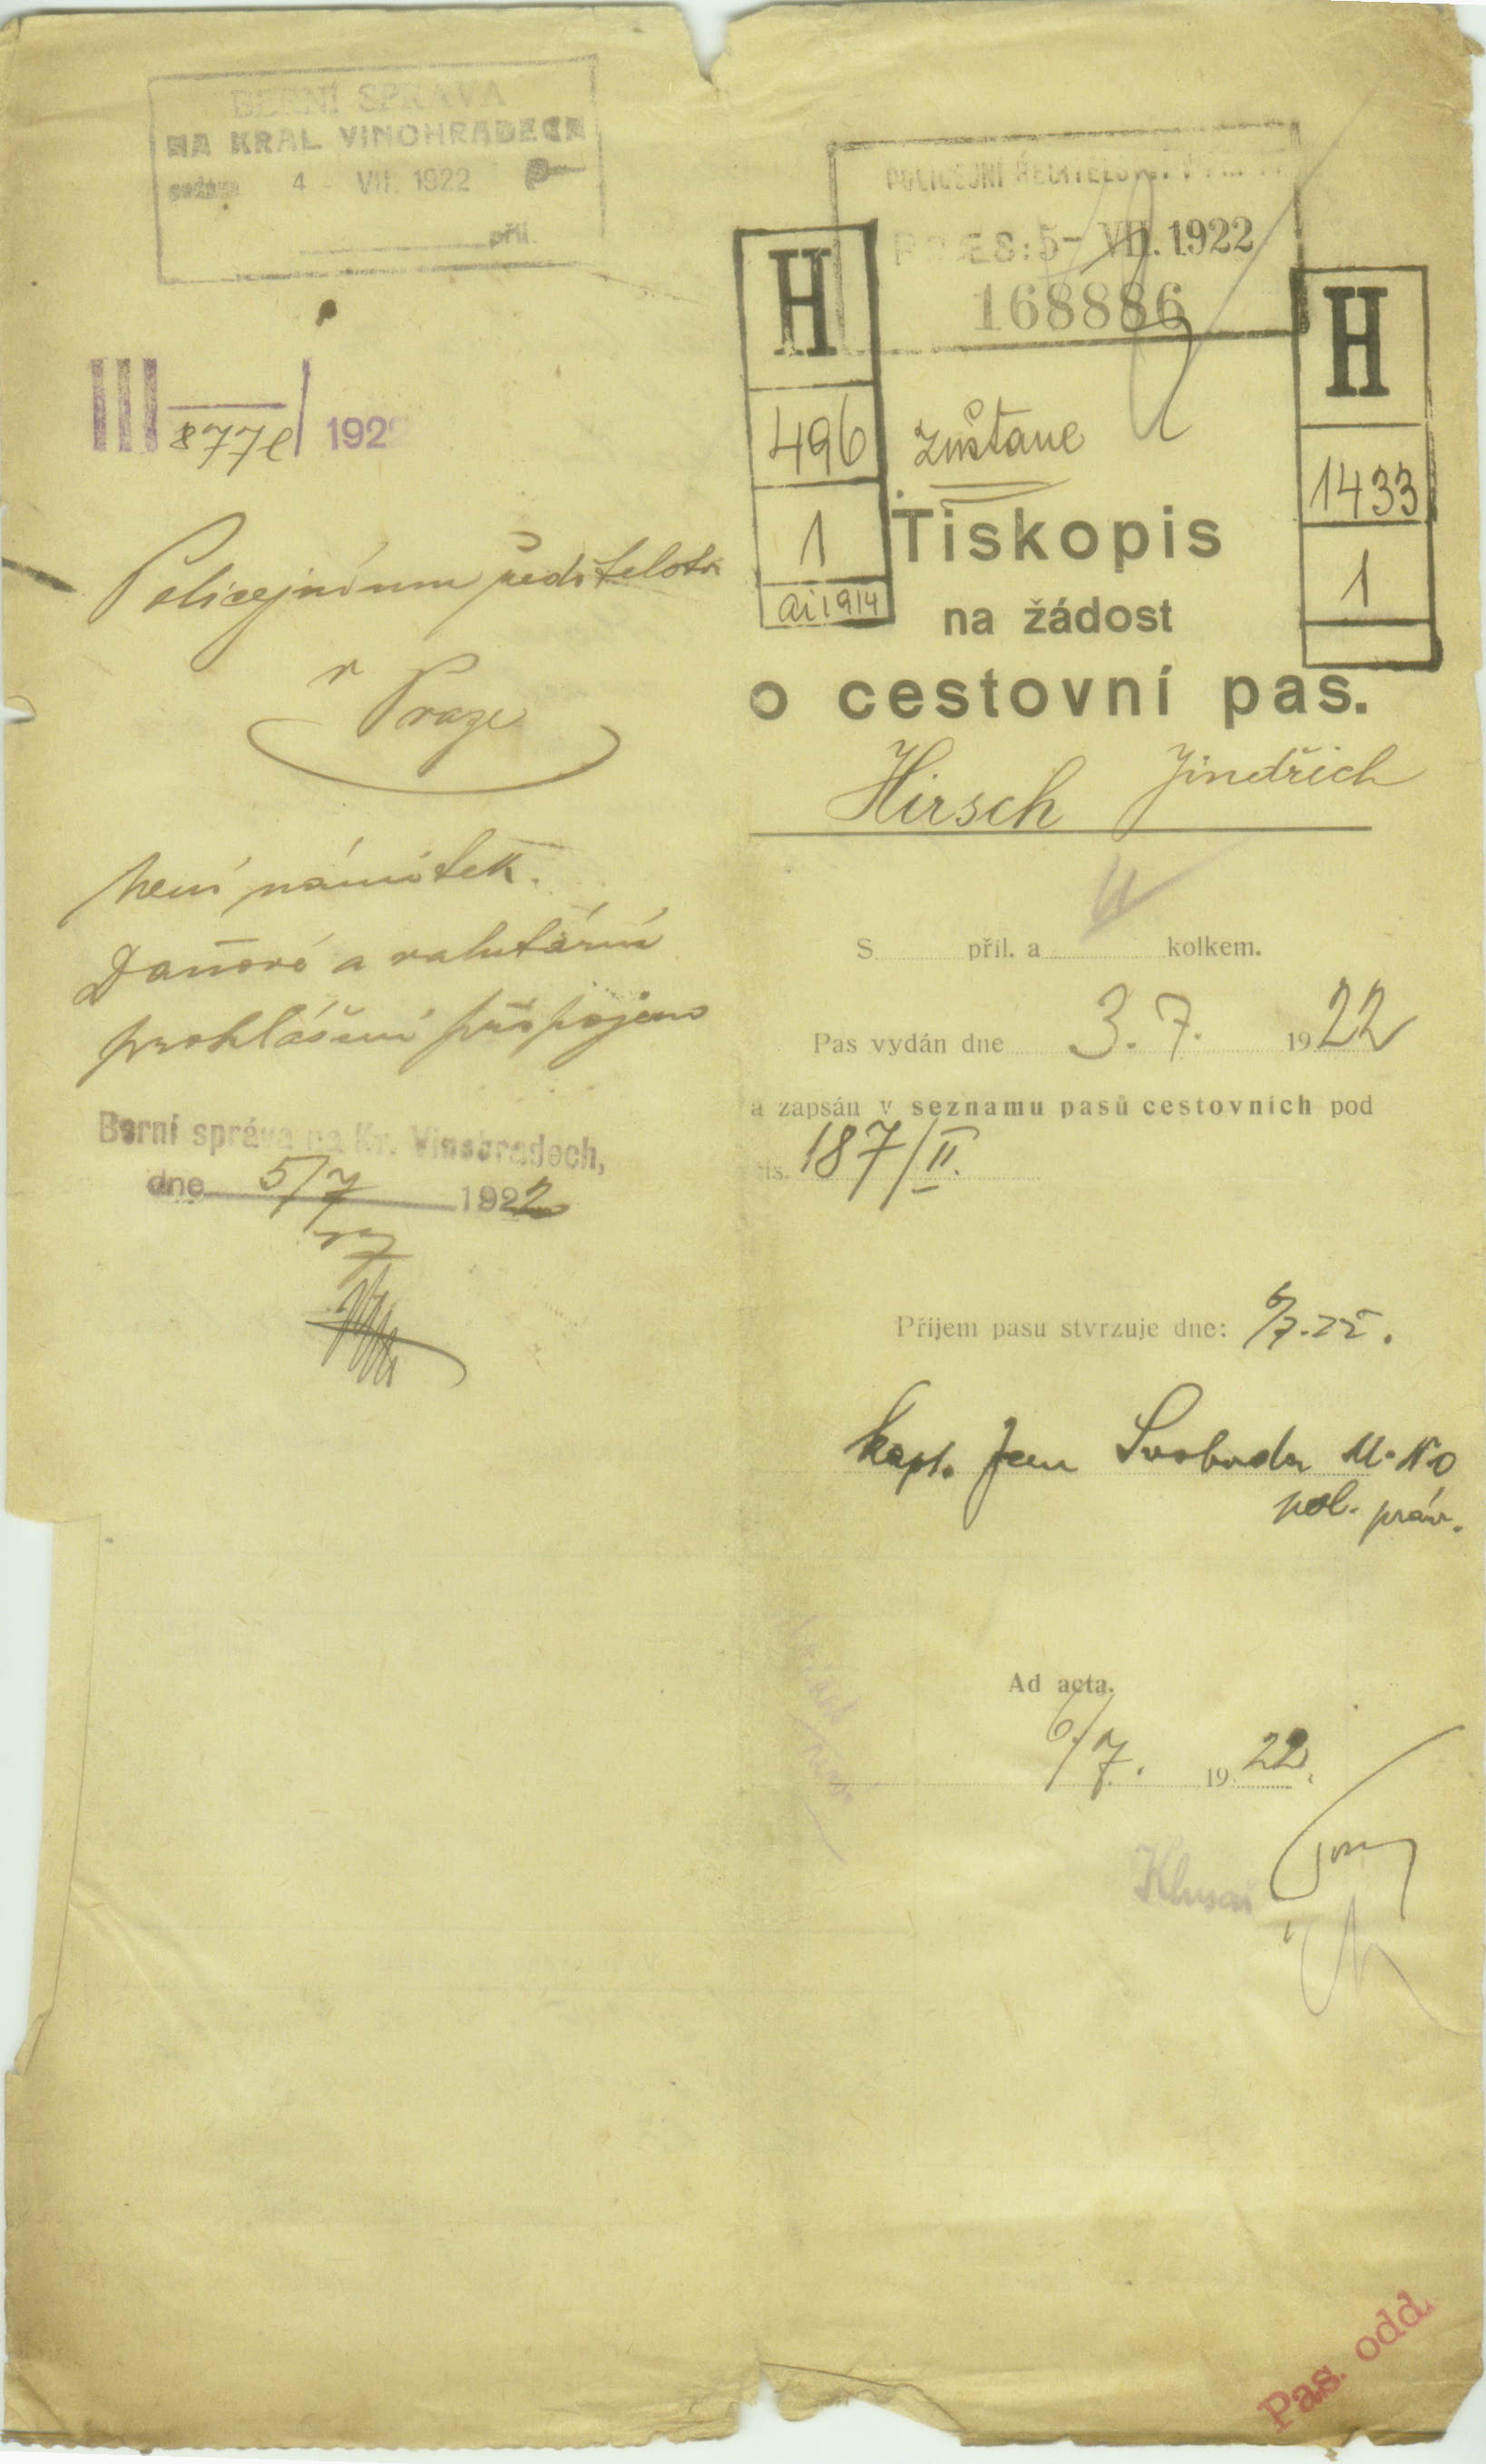 BERNÍ SPRÁVA
NA KRAL VINOHRADECH
4 - VII. 1922
příl.
III 1922
Policejnímu ředitelství
v Praze
Není námitek.
Daňové a valutární
prohlášení připojeno
Berní správa na Kr. Vinohradech,
dne 5/7 1922
POLICEJNÍ ŘEDITELSTVÍ V
PRAES: 5- VII. 1922
168886
H
496
1
ai 1914
H
1433
1
zůstane
Tiskopis
na žádost
o cestovní pas.
Hirsch Jindřich
S příl. a kolkem.
Pas vydán dne 3. 7. 1922
a zapsán v seznamu pasů cestovních pod
čís. 187/II.
Příjem pasu stvrzuje dne: 6/7. 22.
kapt. Jan Svoboda M.N.O
pol. práv.
Ad acta.
6/7. 1922.
Pas. odd.